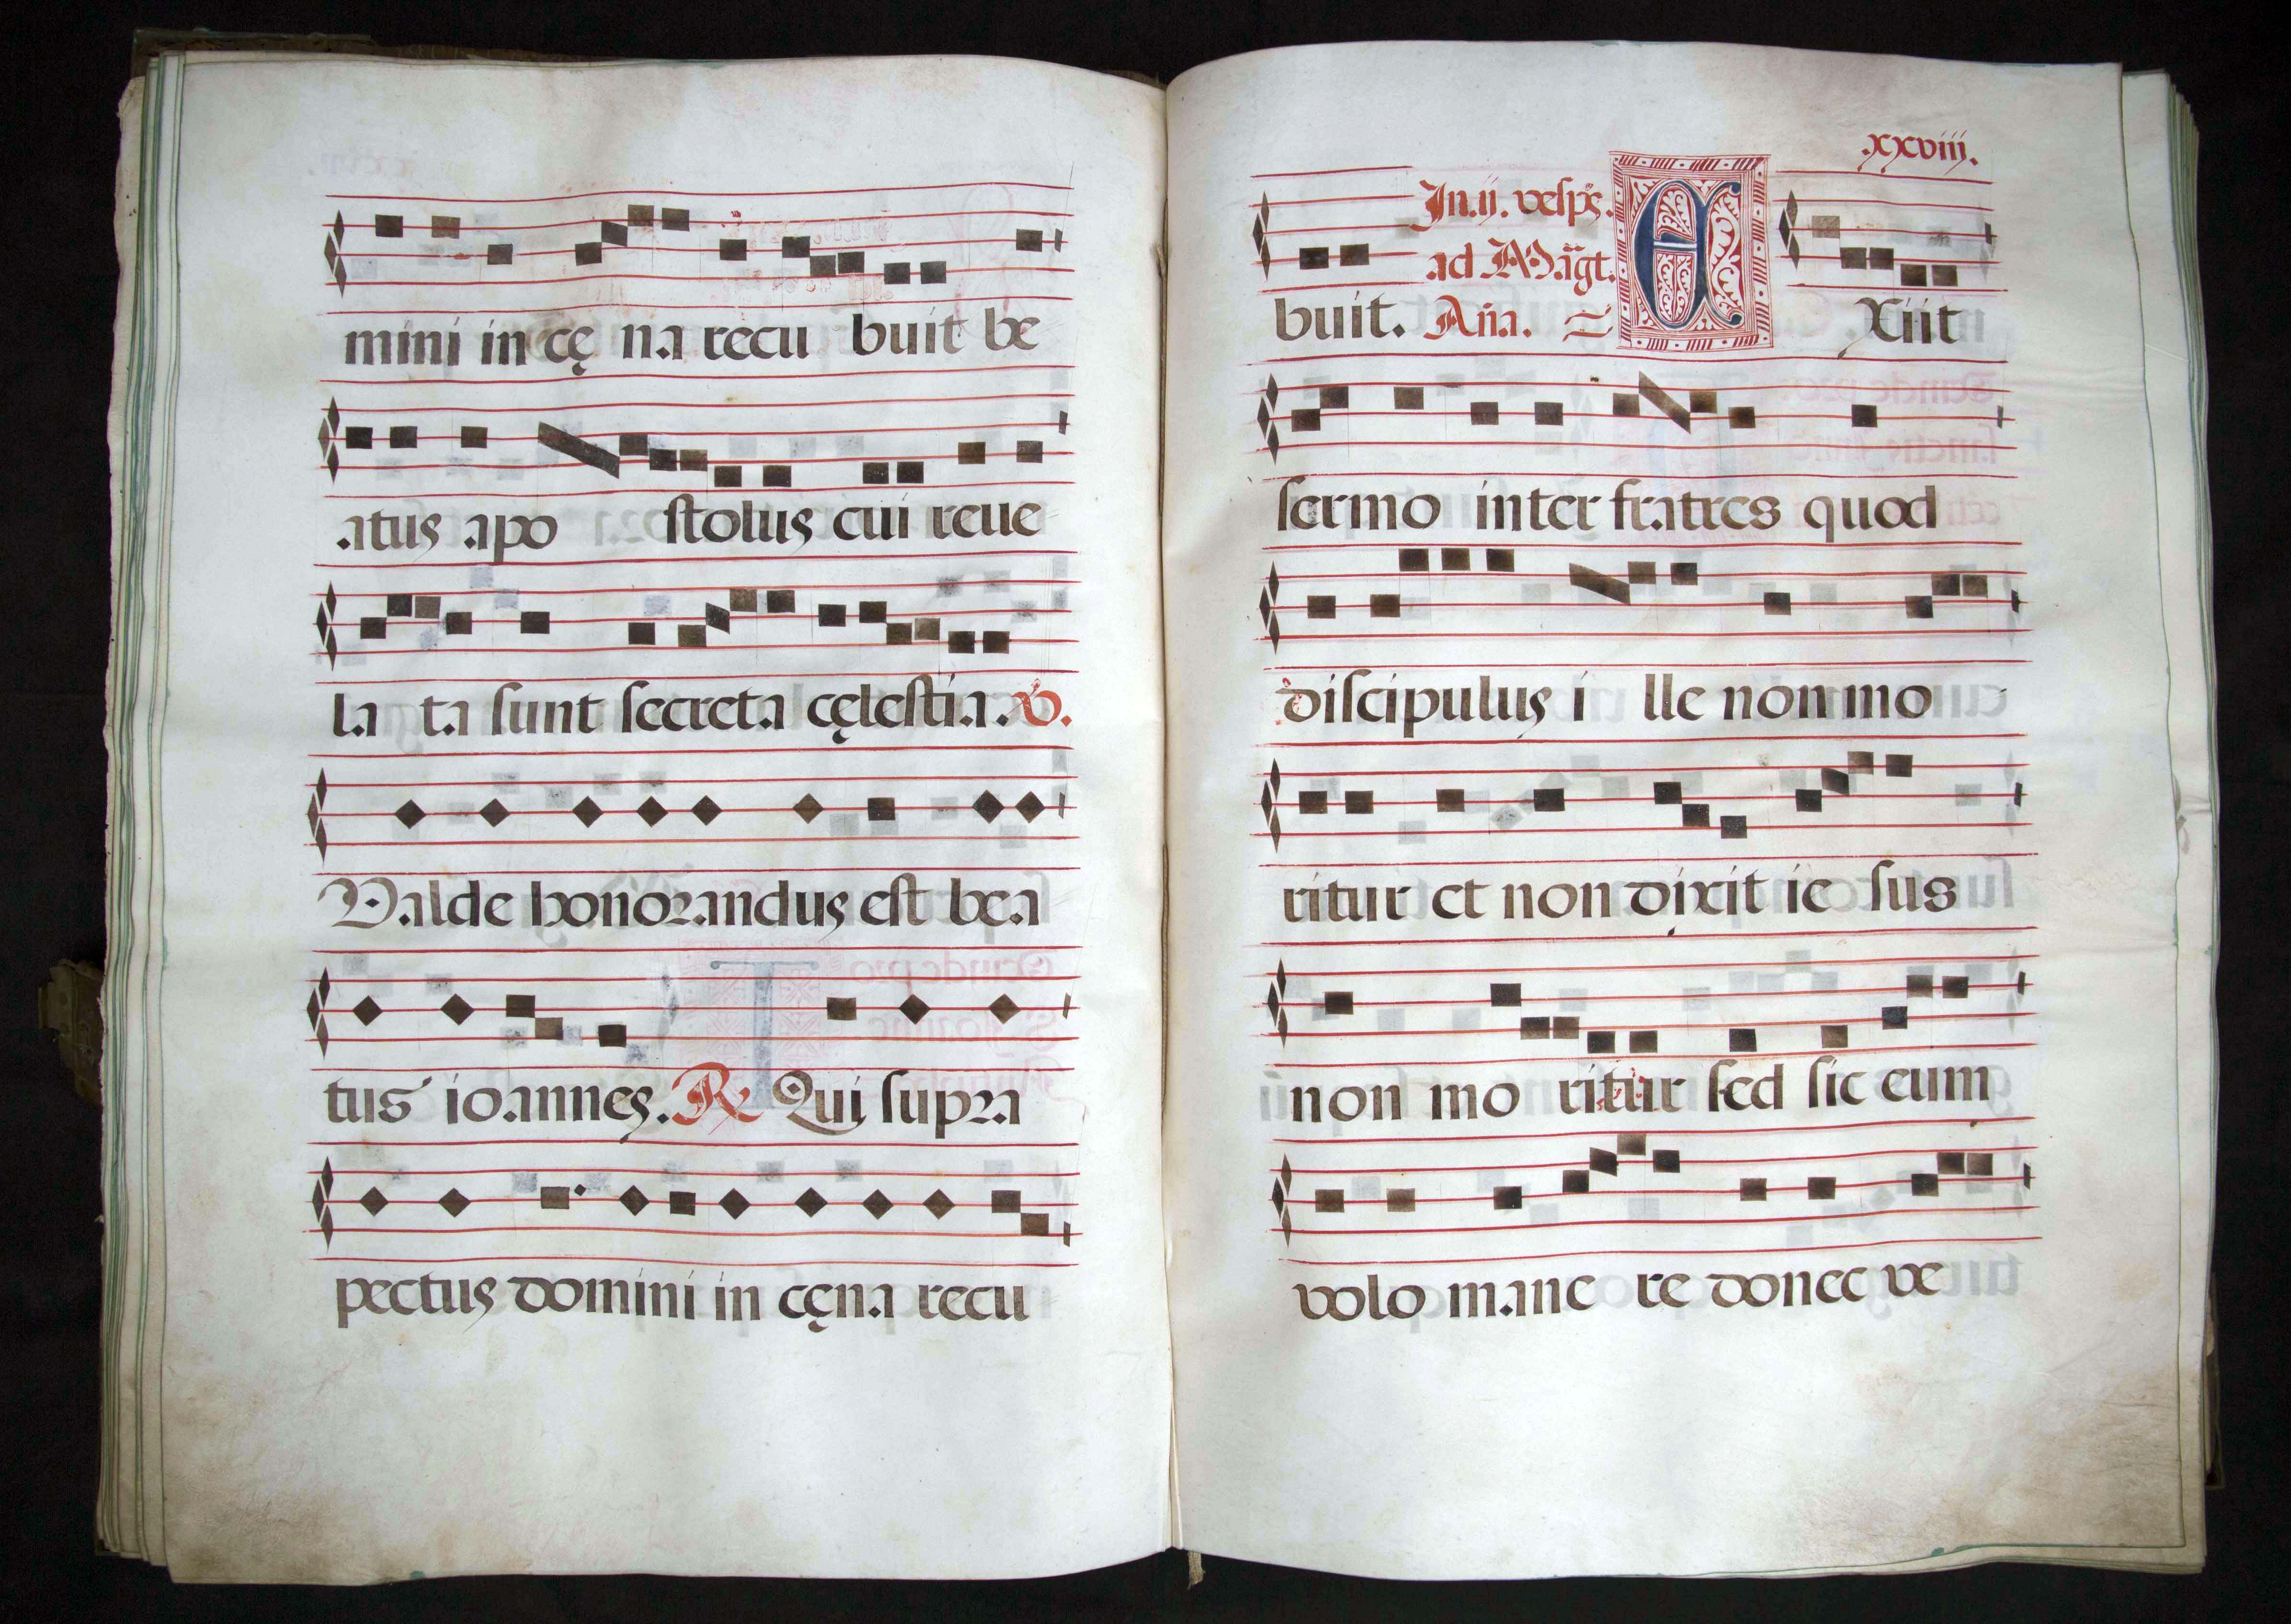 mini in cę na recu buit be
atus apo stolus cui reue
la ta sunt secreta cęlestia. ℣.
Valde honorandus est bea
tus ioannes. ℟ Qui supra
pectus domini in cęna recu
xxviii.
In.ij. vesps̃.
ad Mãgt.
buit. Añа. E Xiit
sermo inter fratres quod
discipulus i lle non mo
ritur et non dixit ie sus
non mo ritur sed sic eum
volo mane re donec ve